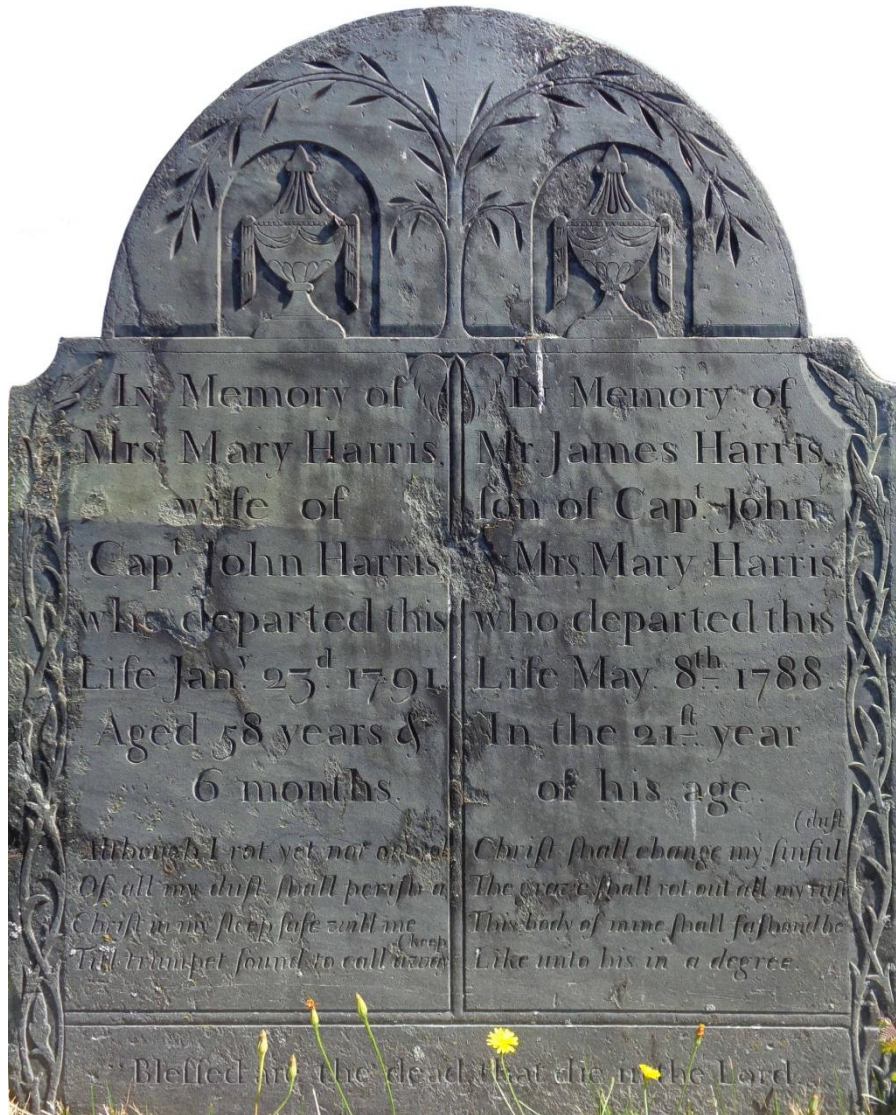 In Memory of
Mrs. Mary Harris,
wife of
Capt. John Harris
who departed this
Life Jany. 23d. 1791
Aged 58 years &
6 months.
Although I rot, yet not
Of all my duſt ſhall periſh
Chriſt in my ſleep ſafe will me
(keep
Till trumpet ſound to call
In Memory of
Mr. James Harris,
ſon of Capt. John
& Mrs. Mary Harris
who departed this
Life May 8th. 1788.
In the 21ſt. year
of his age.
(duſt
Chriſt ſhall change my ſinful
The grave ſhall rot out all my ruſt
This body of mine ſhall faſhond be
Like unto his in a degree.
"Bleſſed are the dead that die in the Lord.